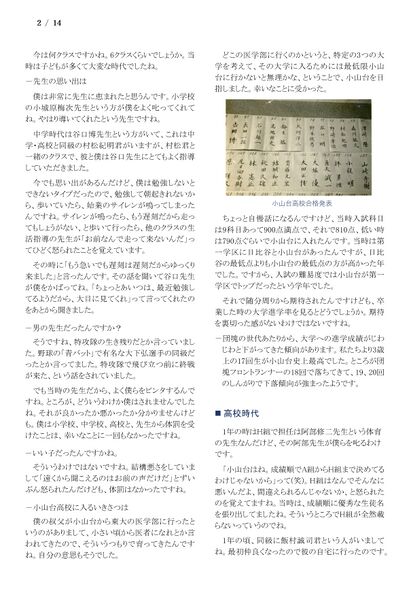 2 / 14
今は何クラスですかね。6クラスくらいでしょうか。当
時は子どもが多くて大変な時代でしたね。
－先生の思い出は
僕は非常に先生に恵まれたと思うんです。小学校
の小城原梅次先生という方が僕をよく叱ってくれて
ね。やはり導いてくれたという先生ですね。
中学時代は谷口博先生という方がいて、これは中
学・高校と同級の村松紀明君がいますが、村松君と
一緒のクラスで、彼と僕は谷口先生にとてもよく指導
していただきました。
今でも思い出があるんだけど、僕は勉強しないと
できないタイプだったので、勉強して朝起きれないか
ら、歩いていたら、始業のサイレンが鳴ってしまった
んですね。サイレンが鳴ったら、もう遅刻だから走っ
てもしょうがない、と歩いて行ったら、他のクラスの生
活指導の先生が「お前なんで走って来ないんだ」っ
てひどく怒られたことを覚えています。
その時に「もう急いでも遅刻は遅刻だからゆっくり
来ました」と言ったんです。その話を聞いて谷口先生
が僕をかばってね。「ちょっとあいつは、最近勉強し
てるようだから、大目に見てくれ」って言ってくれたの
をあとから聞きました。
－男の先生だったんですか？
そうですね、特攻隊の生き残りだとか言っていまし
た。野球の「青バット」で有名な大下弘選手の同級だ
ったとか言ってました。特攻隊で飛び立つ前に終戦
が来た、という話をされていました。
でも当時の先生だから、よく僕らをビンタするんで
すね。ところが、どういうわけか僕はされませんでした
ね。それが良かったか悪かったか分かりませんけど
も。僕は小学校、中学校、高校と、先生から体罰を受
けたことは、幸いなことに一回もなかったですね。
－いい子だったんですかね。
そういうわけではないですね。結構悪さをしていま
して「遠くから聞こえるのはお前の声だけだ」とずい
ぶん怒られたんだけども、体罰はなかったですね。
－小山台高校に入るいきさつは
僕の叔父が小山台から東大の医学部に行ったと
いうのがありまして、小さい頃から医者になれとか言
われてきたので、そういうつもりで育ってきたんです
ね。自分の意思もそうでした。
どこの医学部に行くのかというと、特定の3つの大
学を考えて、その大学に入るためには最低限小山
台に行かないと無理かな、ということで、小山台を目
指しました。幸いなことに受かった。
小山台高校合格発表
ちょっと自慢話になるんですけど、当時入試科目
は9科目あって900点満点で、それで810点、低い時
は790点ぐらいで小山台に入れたんです。当時は第
一学区に日比谷と小山台があったんですが、日比
谷の最低点よりも小山台の最低点の方が高かった年
でした。ですから、入試の難易度では小山台が第一
学区でトップだったという学年でした。
それで随分周りから期待されたんですけども、卒
業した時の大学進学率を見るとどうでしょうか。期待
を裏切った感がないわけではないですね。
－団塊の世代あたりから、大学への進学成績がじわ
じわと下がってきた傾向があります。私たちより3歳
上の17回生が小山台史上最高でした。ところが団
塊フロントランナーの18回で落ちてきて、19、20回
のしんがりで下落傾向が強まったようです。
■ 高校時代
1年の時はH組で担任は阿部修二先生という体育
の先生なんだけど、その阿部先生が僕らを叱るわけ
です。
「小山台はね。成績順でA組からH組まで決めてる
わけじゃないから」って（笑）。H組はなんでそんなに
悪いんだよ、間違えられるんじゃないか、と怒られた
のを覚えてますね。当時は、成績順に優秀な生徒名
を張り出してましたね。そういうところでH組が全然載
らないっていうのでね。
1年の頃、同級に飯村誠司君という人がいまして
ね。最初仲良くなったので彼の自宅に行ったのです。